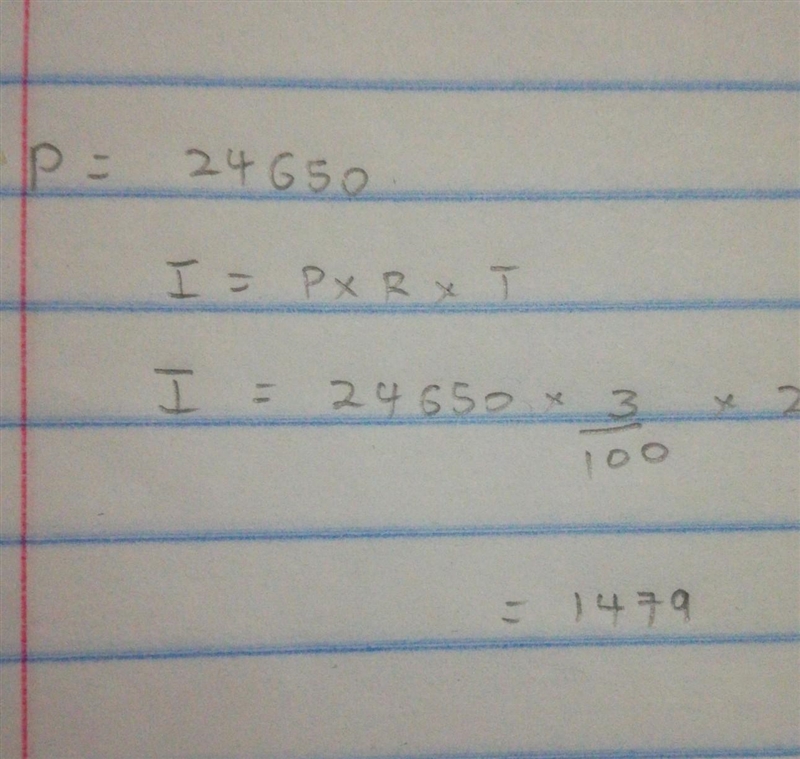 P = 24650
I = P x R x T
I = 24650 x 3/100 x 2
= 1479